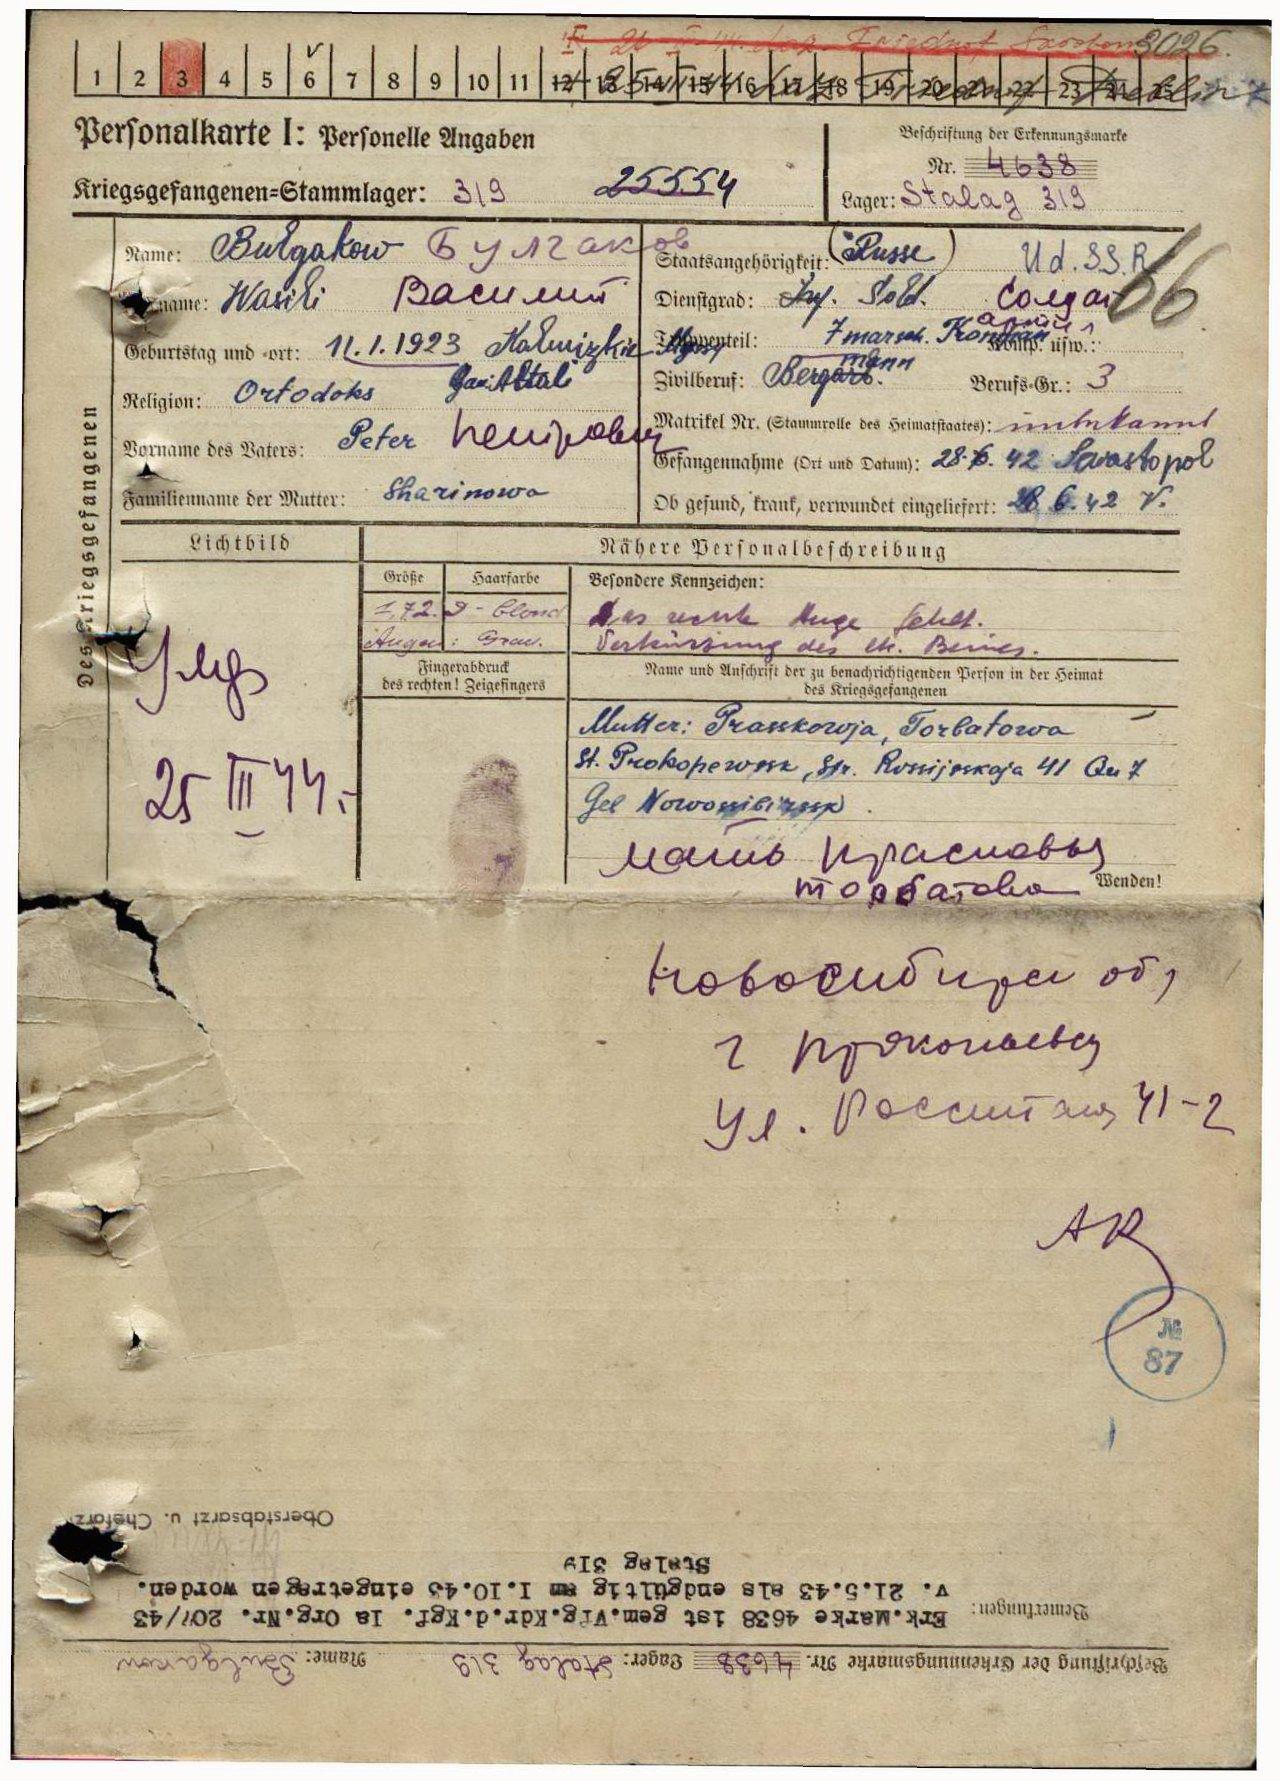 3026.
1 2 3 4 5 6 7 8 9 10 11 12 13 14 15 16 17 18 19 20 21 22 23 24 25
Personalkarte I: Personelle Angaben
Kriegsgefangenen=Stammlager: 319 25554
Beschriftung der Erkennungsmarke
Nr. 4638
Lager: Stalag 319
Des Kriegsgefangenen
Name: Bulgakow Булгаков
name: Wasili Василий
Geburtstag und -ort: 11.1.1923
Religion: Ortodoks
Vorname des Vaters: Peter
Familienname der Mutter: Sharinowa
Staatsangehörigkeit: (Russe) U.d.S.S.R
66
Dienstgrad: Sold. Солдат
Truppenteil: 7 marsch. Komp. usw.:
Zivilberuf: Bergmann Berufs=Gr.: 3
Matrikel Nr. (Stammrolle des Heimatstaates): unbekannt
Gefangennahme (Ort und Datum): 28.6.42 Sewastopol
Ob gesund, krank, verwundet eingeliefert: 28.6.42 V.
Lichtbild
Nähere Personalbeschreibung
Größe Haarfarbe Besondere Kennzeichen:
1,72. d-blond Das rechte Auge fehlt.
Augen: Grau. Verkürzung des Beines.
Fingerabdruck
des rechten! Zeigefingers
Name und Anschrift der zu benachrichtigenden Person in der Heimat
des Kriegsgefangenen
Mutter: Prasskowja, Torbatowa
St. Prokopewssk, Str. Rossijskaja 41 Qu 7
Geb Nowossibirssk
25 III 44.
мать Прасковья
Торбатова
Wenden!
Новосибирск об,
г Прокопьевск
ул. Россиская 41-2
АК
№
87
Oberstabsarzt u. Chefarzt
Stalag 319
v. 21.5.43 als endgültig am 1.10.43 eingetragen worden.
Bemerkungen: Erk.Marke 4638 ist gem.Vfg.Kdr.d.Kgf. Ia Org.Nr. 207/43
Beschriftung der Erkennungsmarke Nr. 4638 Lager: Stalag 319 Name: Bulgakow